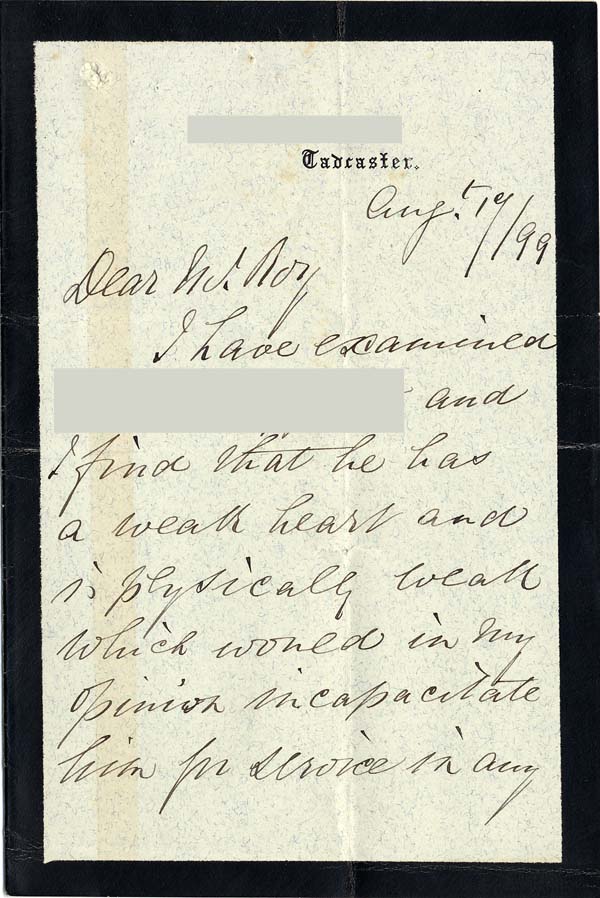 Tadcaster.
Augt. 19/99
Dear Mr. Roy
I have examined
and
I find that he has
a weak heart and
is physically weak
which would in my
opinion incapacitate
him for service in any